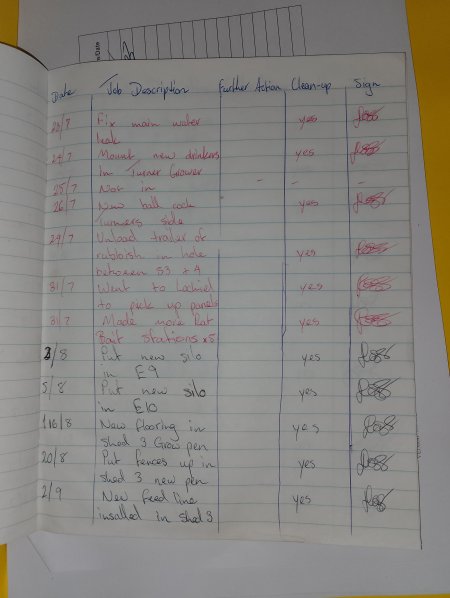 Date Job Description Further Action Clean-up Sign
23/7 Fix main water yes
leak
24/7 Mount new drinkers yes
In Turner Grower
25/7 Not in - - -
26/7 New ball cock yes
Turners side
29/7 Unload trailer of
rubbish in hole yes
between S3 + 4
31/7 Went to yes
to pick up panels
31/7 Made more Rat yes
Bait Stations x5
3/8 Put new silo yes
in E9
5/8 Put new silo yes
in E10
16/8 New flooring in yes
shed 3 Grow pen
20/8 Put fences up in yes
shed 3 new pen
2/9 New feed line yes
insalled in shed 3